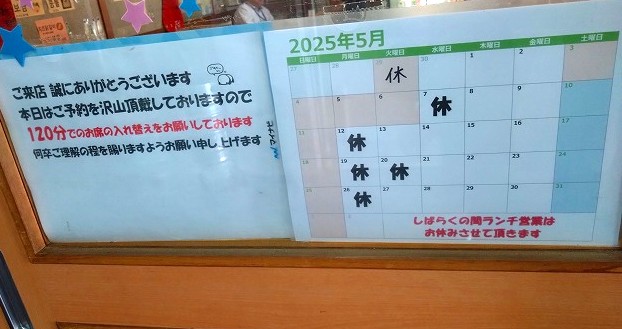 ご来店 誠にありがとうございます
本日はご予約を沢山頂戴しておりますので
120分でのお席の入れ替えをお願いしております
何卒ご理解の程を賜りますようお願い申し上げます
2025年5月
日曜日 月曜日 火曜日 水曜日 木曜日 金曜日 土曜日
27 28 29 休 30 1 2 3
4 5 6 7 休 8 9 10
11 12 休 13 14 15 16 17
18 19 休 20 休 21 22 23 24
25 26 休 27 28 29 30 31
しばらくの間ランチ営業は
お休みさせて頂きます